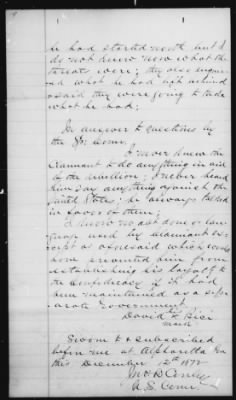 he had started north but I
do not know now what the
threats were; they also
what he had left behind
& said they were going to take
what he had;
In answer to questions by
the Sp. Com.
I never knew the
Claimant to do anything in aid
of the rebellion; I never heard
him say anything against the
United States; he always talked
in favor of them;
I know no act done or lan-
guage used by claimant ex-
cept as aforesaid which would
have prevented him from
establishing his loyalty to
the confederacy if it had
been maintained as a sep-
arate Government
David his
mark
Sworn to & subscribed
before me at Alpharetta Ga
this December 12th 1872
Jno D.
U.S. Comr